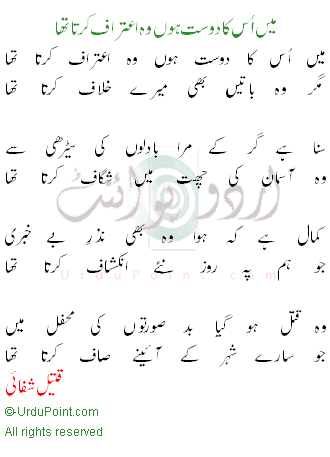 میں اُس کا دوست ہوں وہ اعتراف کرتا تھا
میں اُس کا دوست ہوں وہ اعتراف کرتا تھا
مگر وہ باتیں بھی میرے خلاف کرتا تھا
سنا ہے گر کے مرا بادلوں کی سیڑھی سے
وہ آسمان کی چھت میں شگاف کرتا تھا
کمال ہے کہ ہوا وہ بھی نذرِ بے خبری
جو ہم پہ روز نئے انکشاف کرتا تھا
وہ قتل ہو گیا بد صورتوں کی محفل میں
جو سارے شہر کے آئینے صاف کرتا تھا
قتیل شفائی
©-UrduPoint.com
All rights reserved
اردو پوائنٹ
UrduPoint.com